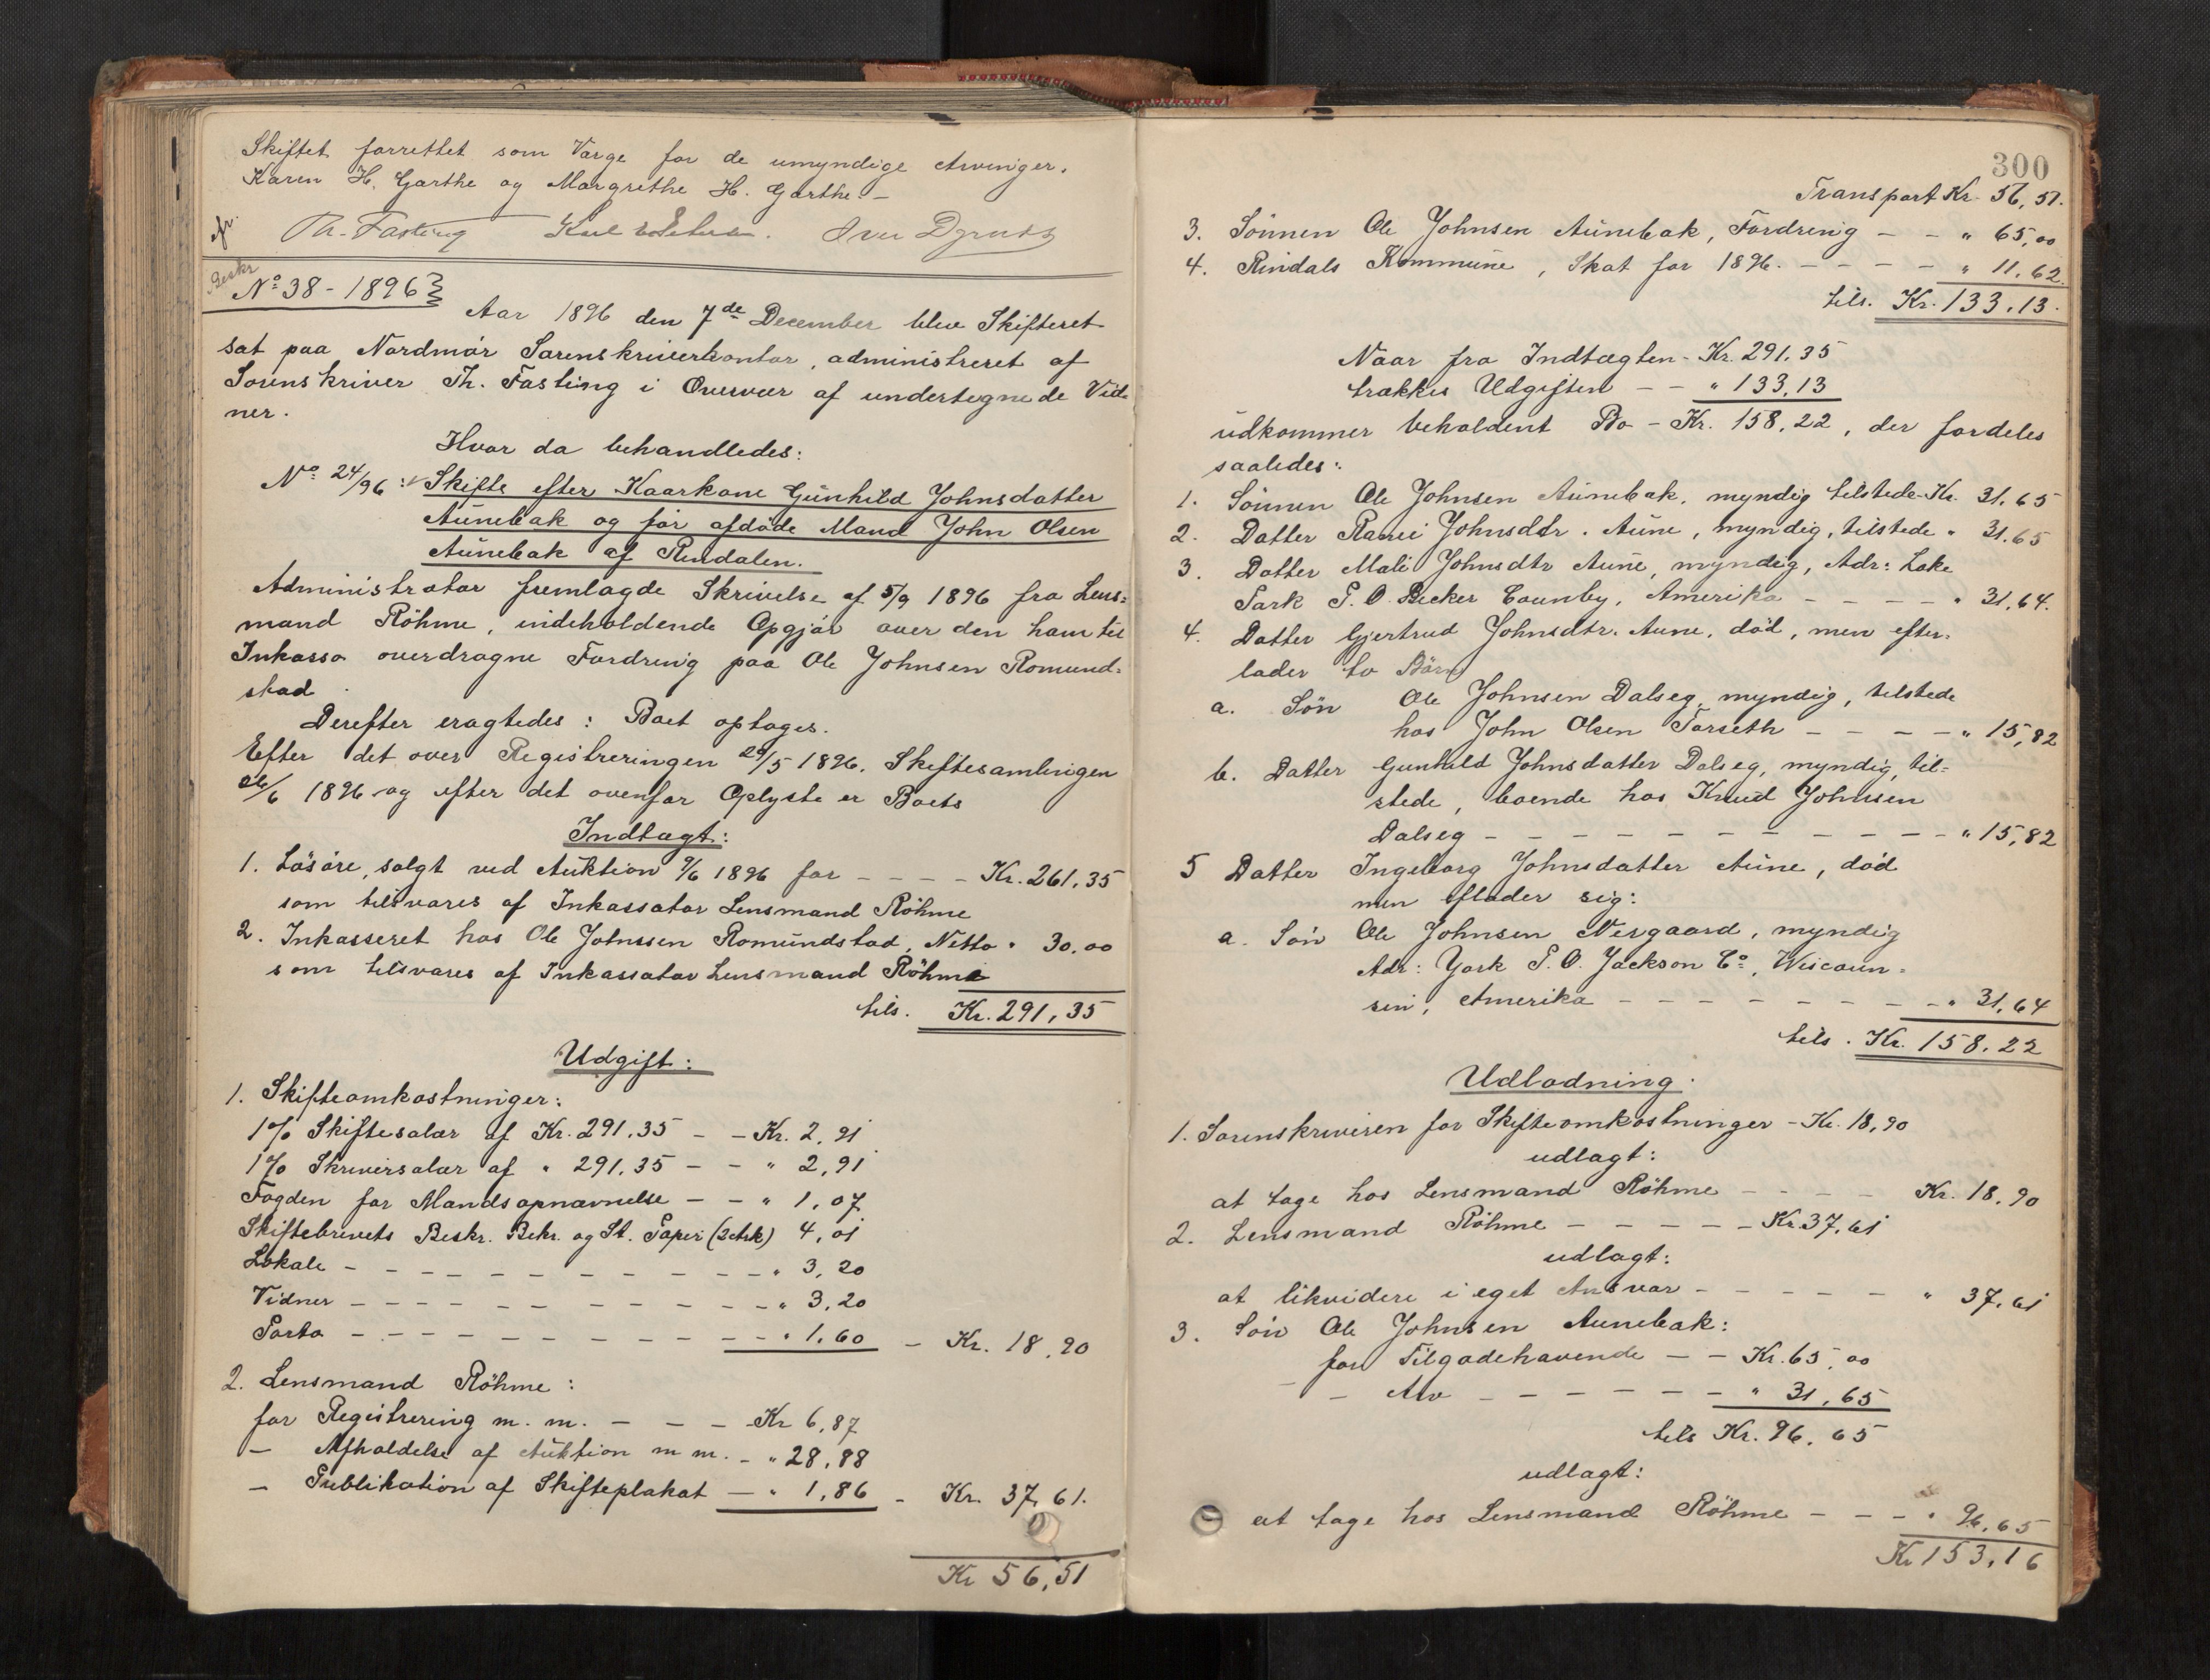 Skiftet forrettet som Værge for de umyndige Arvinger.
Karen H. Garthe og Margrethe H. Garthe. –
Th. Fasting
Beskr
No 38 - 1896
Aar 1896 den 7de December blev Skifteret
sat paa Nordmør Sorenskriverkontor, administreret af
Sorenskriver Th. Fasting i Overvær af undertegnede Vid-
ner.
Hvor da behandledes:
No 24/96: Skifte efter Kaarkone Gunhild Johnsdatter
Aunebak og før afdøde Mand John Olsen
Aunebak af Rindalen.
Administrator fremlagde Skrivelse af 5/9 1896 fra Lens=
mand Röhme, indeholdende Opgjør over den ham til
Inkasso overdragne Fordring paa Ole Johnsen Romund=
stad.
Derefter eragtedes: Boet optages.
Efter det over Registreringen 29/5 1896, Skiftesamlingen
26/6 1896 og efter det ovenfor Oplyste er Boets
Indtægt:
1. Løsøre, solgt ved Auktion 9/6 1896 for - - - - Kr. 261,35
som tilsvares af Inkassator Lensmand Röhme
2. Inkasseret hos Ole Johnssen Romundstad, Netto " 30,00
som tilsvares af Inkassator Lensmand Röhme
tils. Kr. 291,35
Udgift:
1. Skifteomkostninger:
1% Skiftesalær af Kr. 291.35 - - Kr. 2,91
1% Skriversalær af " 291.35 - - " 2,91
Fogden for Mandsopnævnelse - - " 1,07
Skiftebrevets Beskr. Bekr. og St. Papir (2 ark) 4,01
Lokale - - - - - - - - - - " 3,20
Vidner - - - - - - - - - - " 3,20
Porto - - - - - - - - - - " 1,60 - Kr. 18,90
2. Lensmand Röhme:
for Registrering m. m. - - - Kr 6,87
- Afholdelse af Auktion m m. - " 28,88
- Publikation af Skifteplakat - " 1,86 - Kr. 37,61.
Kr 56,51
300
Transport Kr. 56,51.
3. Sønnen Ole Johnsen Aunebak, Fordring - - " 65,00
4. Rindals Kommune, Skat for 1896. - - - - " 11,62.
tils. Kr. 133,13.
Naar fra Indtægten - Kr. 291,35
trækkes Udgiften - - " 133,13
udkommer beholdent Bo - Kr. 158,22, der fordeles
saaledes:
1. Sønnen Ole Johnsen Aunebak, myndig tilstede - Kr. 31,65
2. Datter Johnsdtr. Aune, myndig, tilstede " 31.65
3. Datter Mali Johnsdtr Aune, myndig, Adr: Lake
Park P. O. Becker Counby, Amerika - - - - " 31,64.
4. Datter Gjertrud Johnsdtr. Aune, død, men efter-
lader to Børn
a. Søn Ole Johnsen Dalseg, myndig, tilstede
hos John Olsen Torseth - - - - " 15,82
b. Datter Gunhild Johnsdatter Dalseg, myndig, til=
stede, boende hos Knud Johnsen
Dalseg - - - - - - - - - - - " 15,82
5 Datter Ingeborg Johnsdatter Aune, død
men eflader sig:
a. Søn Ole Johnsen Nergaard, myndig
Adr: York P. O. Jackson Co, Wiscoun=
sin, Amerika - - - - - - - - " 31,64
tils. Kr. 158,22
Udlodning.
1. Sorenskriveren for Skifteomkostninger - Kr. 18,90
udlagt:
at tage hos Lensmand Röhme - - - - Kr. 18,90
2. Lensmand Röhme - - - - - Kr. 37,61
udlagt:
at likvidere i eget Ansvar - - - - - " 37,61
3. Søn Ole Johnsen Aunebak:
for Tilgodehavende - - Kr. 65,00
- Arv - - - - - - " 31,65
tils Kr. 96,65
udlagt:
at tage hos Lensmand Röhme - - - " 96,65
Kr 153,16